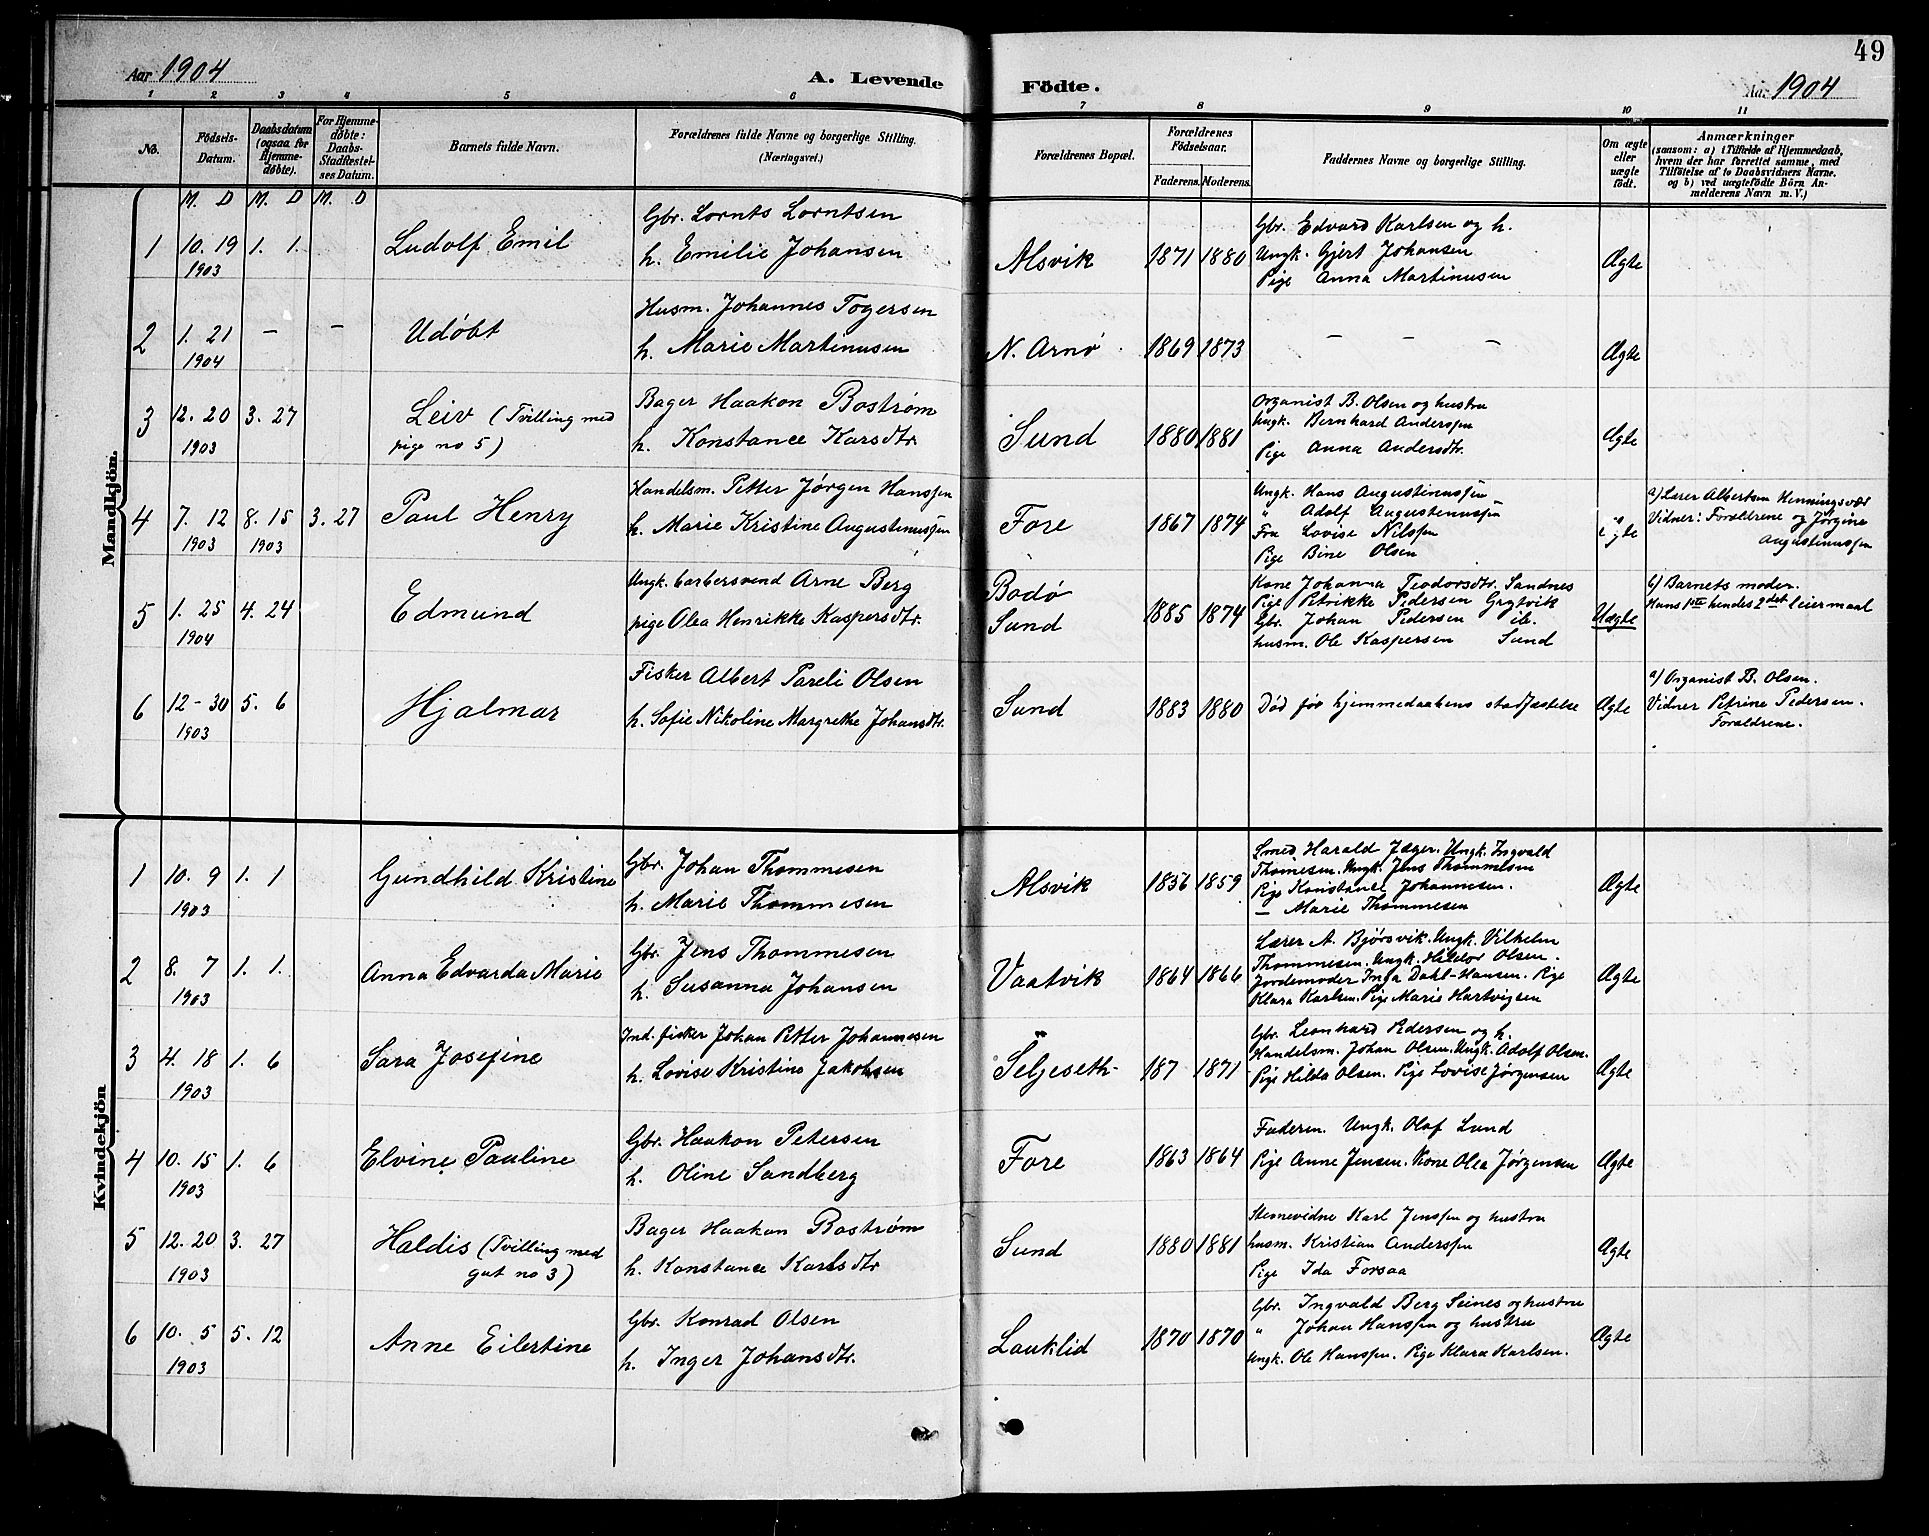 49
Aar 1904
A. Levende Födte.
Aar 1904
1 2 3 4 5 6 7 8 9 10 11
No.
Födsels-
Datum.
Daabsdatum
(ogsaa for
Hjemme-
døbte).
For Hjemme-
døbte:
Daabs-
Stadfæstel-
ses Datum.
Barnets fulde Navn.
Forældrenes fulde Navne og borgerlige Stilling.
(Næringsvei.)
Forældrenes Bopæl.
Forældrenes
Födselsaar.
Faderens. Moderens.
Faddernes Navne og borgerlige Stilling.
Om ægte
eller
uægte
födt.
Anmærkninger
(saasom: a) i Tilfælde af Hjemmedaab,
hvem der har forrettet samme, med
Tilföielse af to Daabsvidners Navne,
og b) ved uægtefödte Börn An-
melderens Navn m. V.)
M. D M. D M. D
Mandkjön.
1 10. 19 1. 1. Ludolf Emil
1903
Gbr. Lornts Lorntsen
h. Emilie Johansen
Alsvik 1871 1880
Gbr. Edvard Karlsen og h.
Ungk. Gjert Johansen
Pige Anna Martinusen
Ægte
2 1. 21 – – Udøbt
1904
Husm. Johannes Togersen
h. Marie Martinusen
N. Arnø 1869 1873 – – – Ægte
3 12. 20 3. 27 Leiv (Tvilling med
1903 pige no 5)
Bager Haakon Bostrøm
h. Konstance Karsdtr.
Sund 1880 1881
Organist B. Olsen og hustru
Ungk. Bernhard Anderssen
Pige Anna Andersdtr.
Ægte
4 7. 12 8. 15 3. 27 Paul Henry
1903 1903
Handelsm. Petter Jørgen Hanssen
h. Marie Kristine Augustinussen
Fore 1867 1874
Ungk. Hans Augustinussen
" Adolf Augustinussen
Fru Lovise Nilssen
Pige Bine Olsen
a) Lærer Albertsen Henningsvær
Vidner: Forældrene og Jørgine
Augustinussen
5 1. 25 4. 24 Edmund
1904
Ungk. barbersvend Arne Berg
pige Olea Henrikke Kaspersdtr.
Bodø
Sund 1885 1874
Kone Johanna Teodorsdtr. Sandnes
Pige Petrikke Pedersen Grytvik
Gbr. Johan Pedersen ib.
husm. Ole Kaspersen Sund
Uægte
b) Barnets moder.
Hans 1ste hendes 2det leiermaal
6 12-30 5. 6 Hjalmar
1903
Fisker Albert Pareli Olsen
h. Sofie Nikoline Margrethe Johansdtr.
Sund 1883 1880 Død før hjemmedaabens stadfæstelse Ægte
a) Organist B. Olsen.
Vidner Petrine Pedersen.
Forældrene.
Kvindekjön
1 10. 9 1. 1 Gundhild Kristine
1903
Gbr. Johan Thommesen
h. Marie Thommesen
Alsvik 1856 1859
Smed Harald Jæger. Ungk. Ingvald
Thomesen. Ungk. Jens Thommesen
Pige Konstance Johannesen.
— Marie Thommesen
Ægte
2 8. 7 1. 1. Anna Edvarda Marie
1903
Gbr. Jens Thommesen
h. Susanna Johansen
Vaatvik 1864 1866
Lærer A. Bjørsvik. Ungk. Vilhelm
Thommesen. Ungk. Hildor Olsen.
Jordemoder Inga Dahl-Hansen. Pige
Klara Karlsen. Pige Marie Hartvigsen
Ægte
3 4. 18 1. 6 Sara Josefine
1903
Ind. fisker Johan Petter Johannesen
h. Lovise Kristine Jakobsen
Seljeseth- 187 1871
Gbr. Leonhard Pedersen og h.
Handelsm. Johan Olsen. Ungk. Adolf Olsen.
Pige Hilda Olsen. Pige Lovise Jørgensen
Ægte
4 10. 15 1. 6 Elvine Pauline
1903
Gbr. Haakon Petersen
h. Oline Sandberg
Fore 1863 1864
Faderen. Ungk. Olaf Lund
Pige Anne Jensen. Kone Olea Jørgensen
Ægte
5 12. 20 3. 27 Haldis (Tvilling med
1903 gut no 3)
Bager Haakon Bostrøm
h. Konstance Karlsdtr
Sund 1880 1881
Stevnevidne Karl Jenssen og hustru
husm. Kristian Anderssen
Pige Ida Forsaa
Ægte
6 10. 5 5. 12 Anne Eilertine
1903
Gbr. Konrad Olsen
h. Inger Johansdtr.
Lauklid 1870 1870
Gbr. Ingvald Berg Seines og hustru
" Johan Hanssen og hustru
Ungk. Ole Hanssen. Pige Klara Karlsen.
Ægte